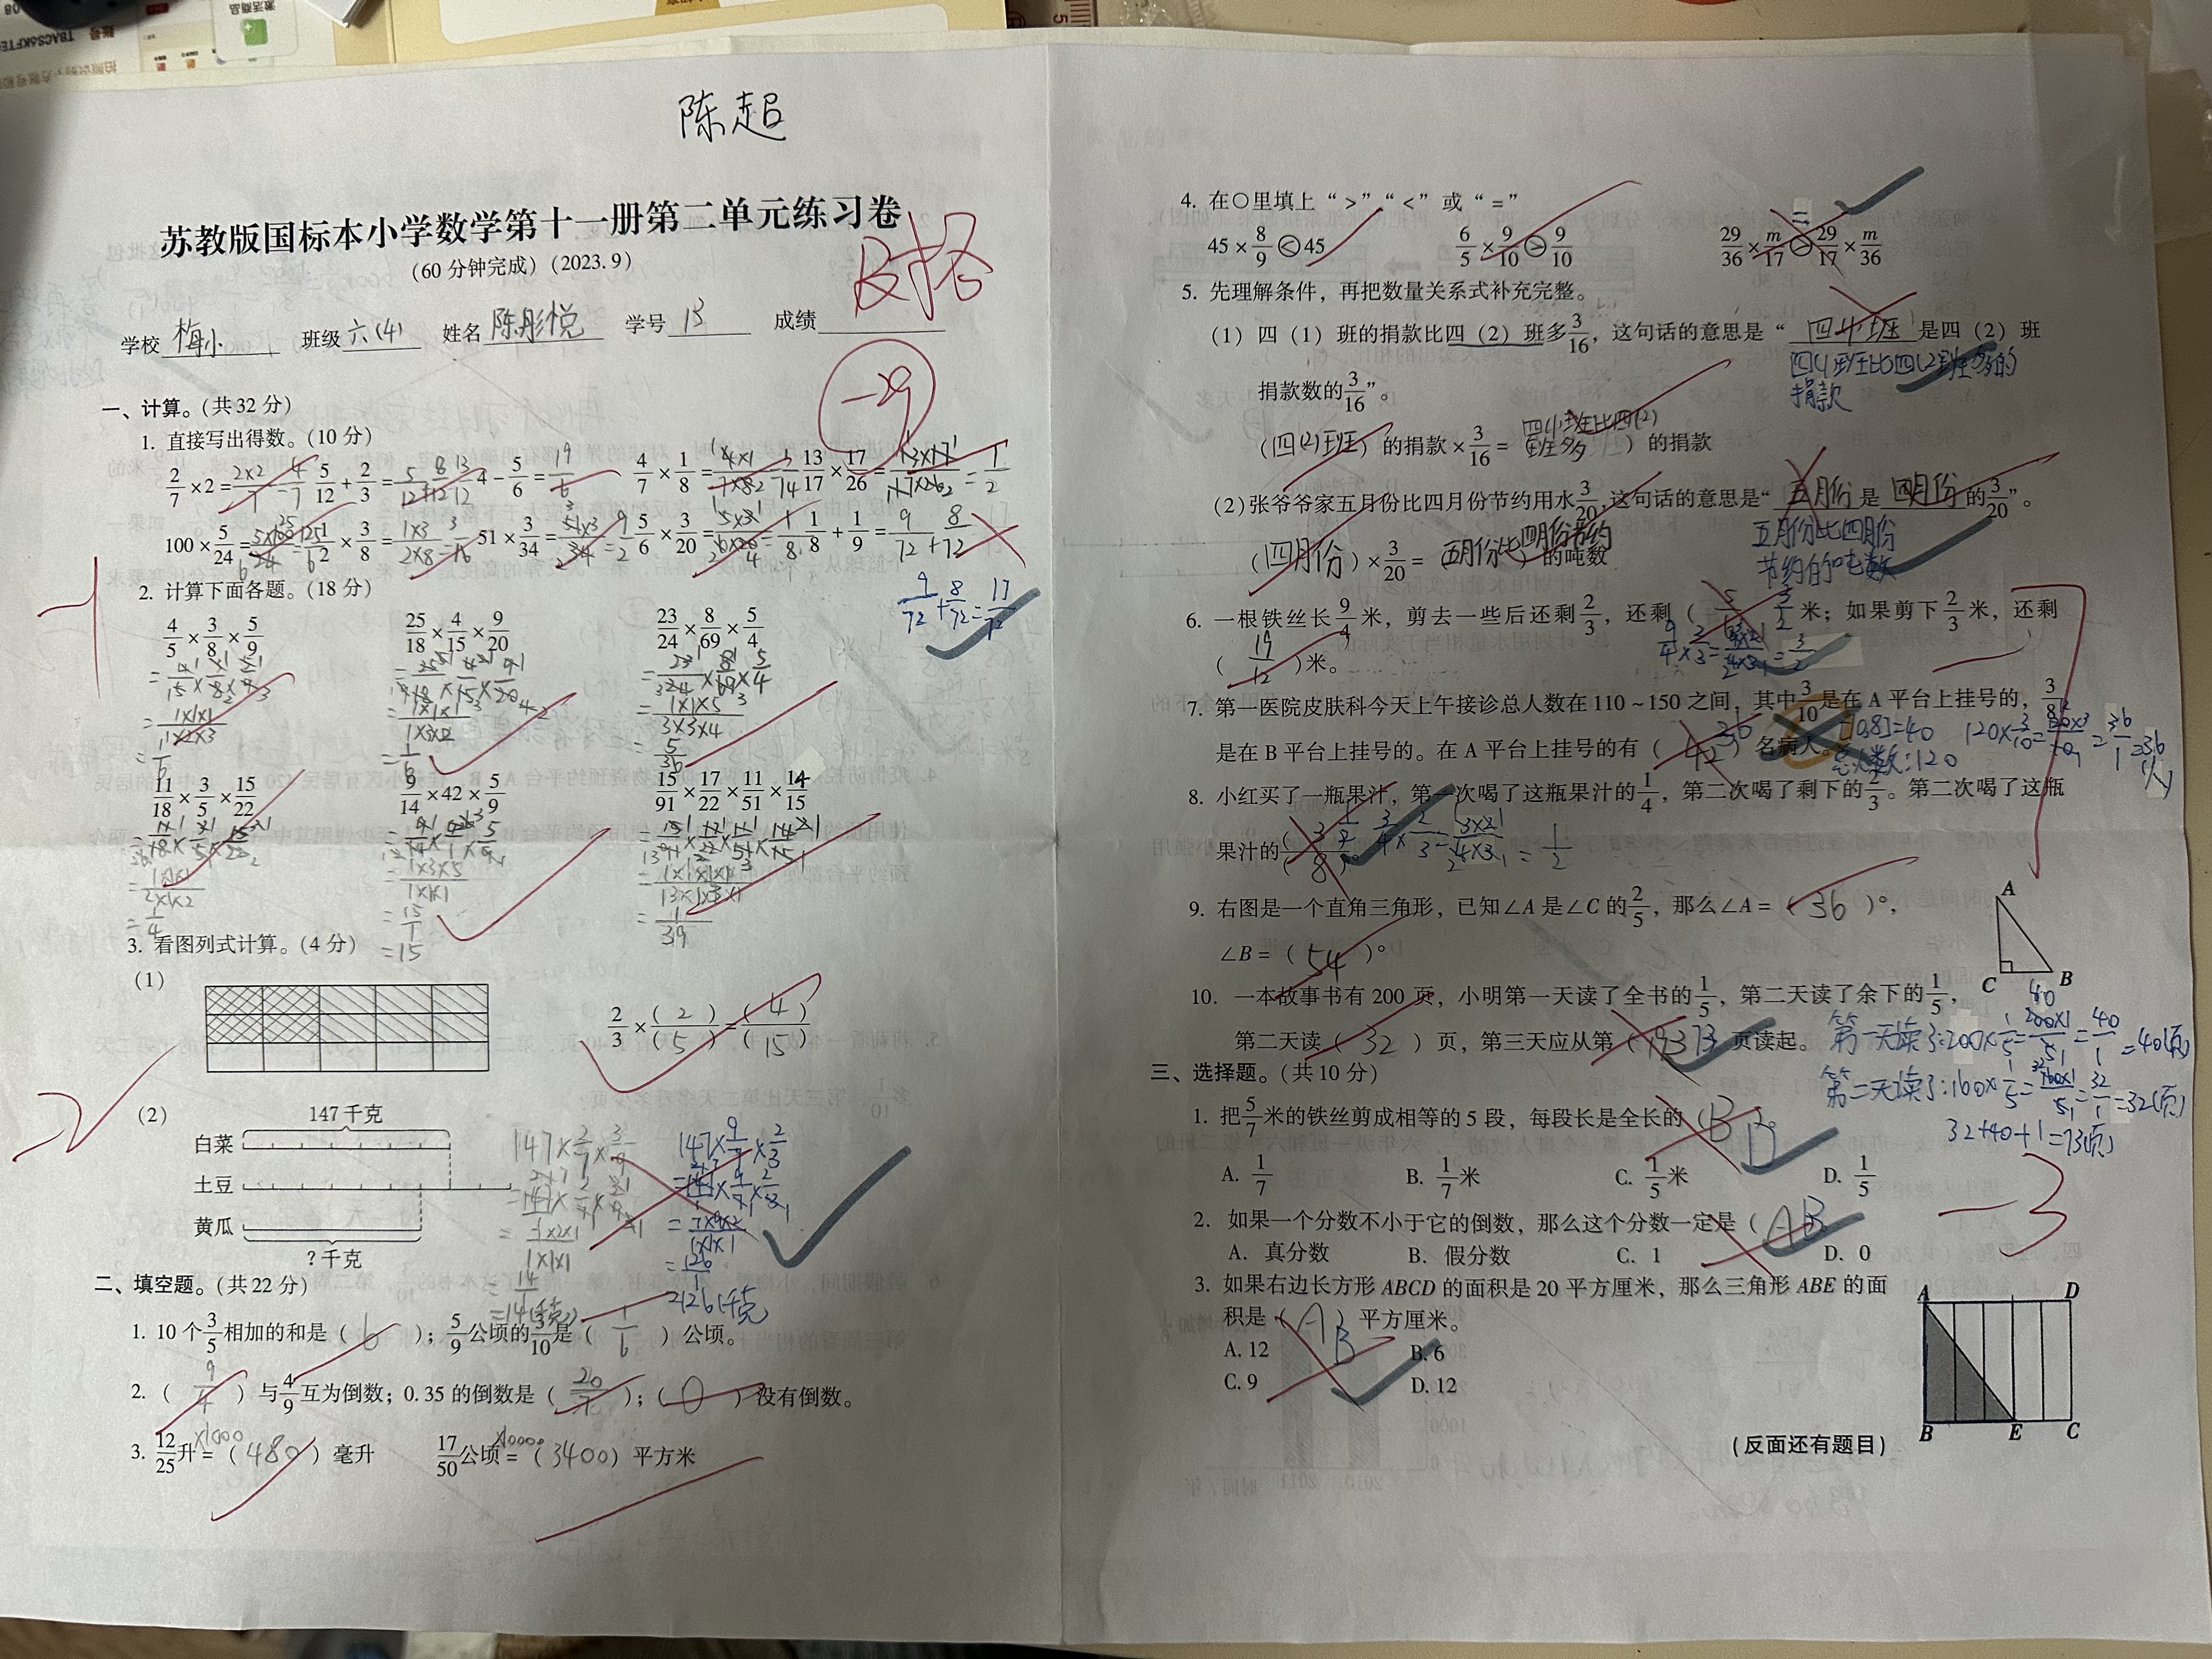 陈超
苏教版国标本小学数学第十一册第二单元练习卷
(60分钟完成)(2023.9)
及格
学校 梅小 班级 六(4) 姓名 陈彤悦 学号 13 成绩
-29
一、计算。(共32分)
1. 直接写出得数。(10分)
2/7×2=2×2/7=4/7 5/12+2/3=5/12+8/12=13/12 4-5/6=19/6 4/7×1/8=4×1/7×8=1/14 13/17×17/26=13×17/17×26=1/2
100×5/24=125/6 1/2×3/8=1×3/2×8=3/16 51×3/34=51×3/34=9/2 5/6×3/20=5×3/6×20=1/8 1/8+1/9=9/72+8/72
9/72+8/72=17/72
2. 计算下面各题。(18分)
4/5×3/8×5/9 25/18×4/15×9/20 23/24×8/69×5/4
=1×1×1/1×2×3 =1×1×1/1×3×2 =1×1×5/3×3×4
=1/6 =1/6 =5/36
11/18×3/5×15/22 9/14×42×5/9 15/91×17/22×11/51×14/15
=1×1×1/2×1×2 =1×3×5/1×1×1 =1×1×1×1/13×1×3×1
=1/4 =15/1 =1/39
=15
3. 看图列式计算。(4分)
(1)
2/3×(2)/(5)=(4)/(15)
-2
(2) 147千克
白菜
土豆
黄瓜
?千克
147×9/7×2/3
=7×9×2/1×1×1
=126/1
=126(千克)
=14/1
=14(千克)
二、填空题。(共22分)
1. 10个3/5相加的和是(6);5/9公顷的3/10是(1/6)公顷。
2. (9/4)与4/9互为倒数;0.35的倒数是(20/7);(0)没有倒数。
3. 12/25升=(480)毫升 17/50公顷=(3400)平方米
×1000 ×10000
4. 在○里填上“>”“<”或“=”
45×8/9<45 6/5×9/10>9/10 29/36×m/17○29/17×m/36
=
5. 先理解条件,再把数量关系式补充完整。
(1) 四(1)班的捐款比四(2)班多3/16,这句话的意思是“四(1)班是四(2)班
四(1)班比四(2)班多的
捐款
捐款数的3/16”。
(四(2)班)的捐款×3/16=(四(1)班比四(2)班多)的捐款
(2)张爷爷家五月份比四月份节约用水3/20,这句话的意思是“五月份是四月份的3/20”。
五月份比四月份
节约的吨数
(四月份)×3/20=五月份比四月份节约的吨数
6. 一根铁丝长9/4米,剪去一些后还剩2/3,还剩(3/2)米;如果剪下2/3米,还剩
(19/12)米。
9/4×2/3=3/2
7. 第一医院皮肤科今天上午接诊总人数在110~150之间,其中3/10是在A平台上挂号的,3/8
是在B平台上挂号的。在A平台上挂号的有(36)名病人。
[10,8]=40
总人数:120
120×3/10=120×3/10=36/1=36(人)
8. 小红买了一瓶果汁,第一次喝了这瓶果汁的1/4,第二次喝了剩下的2/3。第二次喝了这瓶
果汁的(1/2)。
3/4×2/3=3×2/4×3=1/2
9. 右图是一个直角三角形,已知∠A是∠C的2/5,那么∠A=(36)°,
∠B=(54)°
A
C
B
10. 一本故事书有200页,小明第一天读了全书的1/5,第二天读了余下的1/5,
第二天读(32)页,第三天应从第(73)页读起。
第一天读了:200×1/5=200×1/5=40/1=40(页)
第二天读了:160×1/5=160×1/5=32/1=32(页)
32+40+1=73(页)
三、选择题。(共10分)
-3
1. 把5/7米的铁丝剪成相等的5段,每段长是全长的(B)。D
A. 1/7 B. 1/7米 C. 1/5米 D. 1/5
2. 如果一个分数不小于它的倒数,那么这个分数一定是(A)B
A. 真分数 B. 假分数 C. 1 D. 0
3. 如果右边长方形ABCD的面积是20平方厘米,那么三角形ABE的面
积是(A)平方厘米。
B
A. 12 B. 6
C. 9 D. 12
A D
B E C
(反面还有题目)